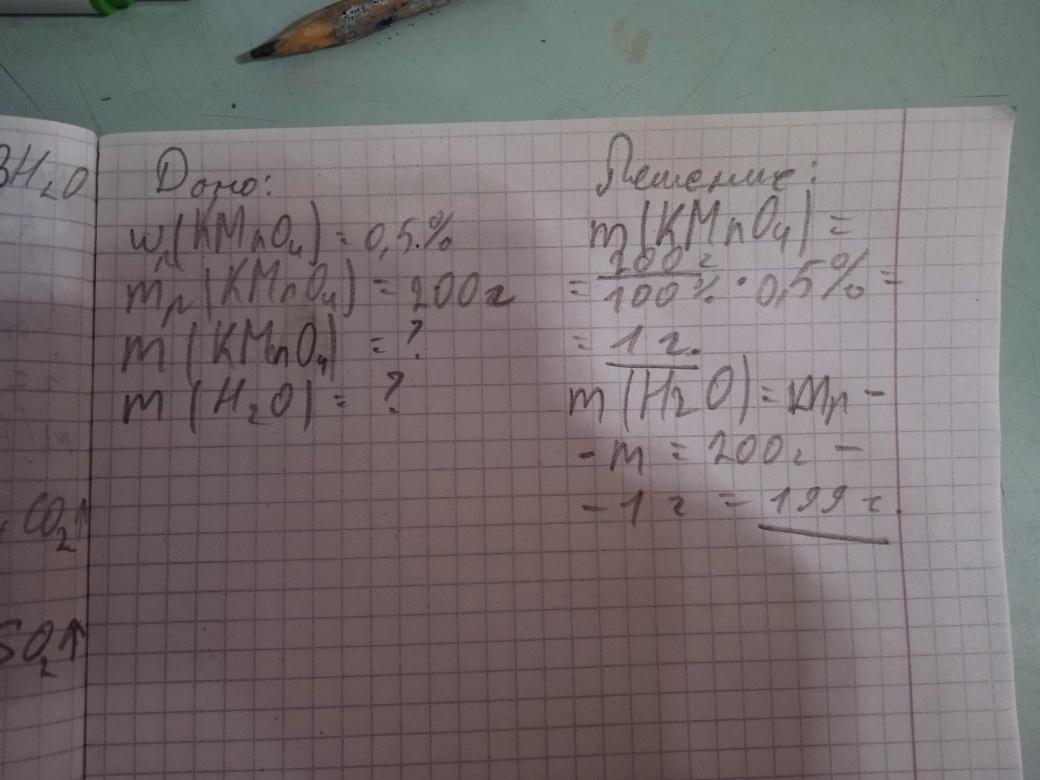 3H₂O
CO₂↑
SO₂↑
Дано:
w(KMnO₄) = 0,5%
mр(KMnO₄) = 200г
m(KMnO₄) = ?
m(H₂O) = ?
Решение:
m(KMnO₄) =
= 200г/100% · 0,5% =
= 1 г.
m(H₂O) = mр -
- m = 200г -
- 1 г = 199 г.